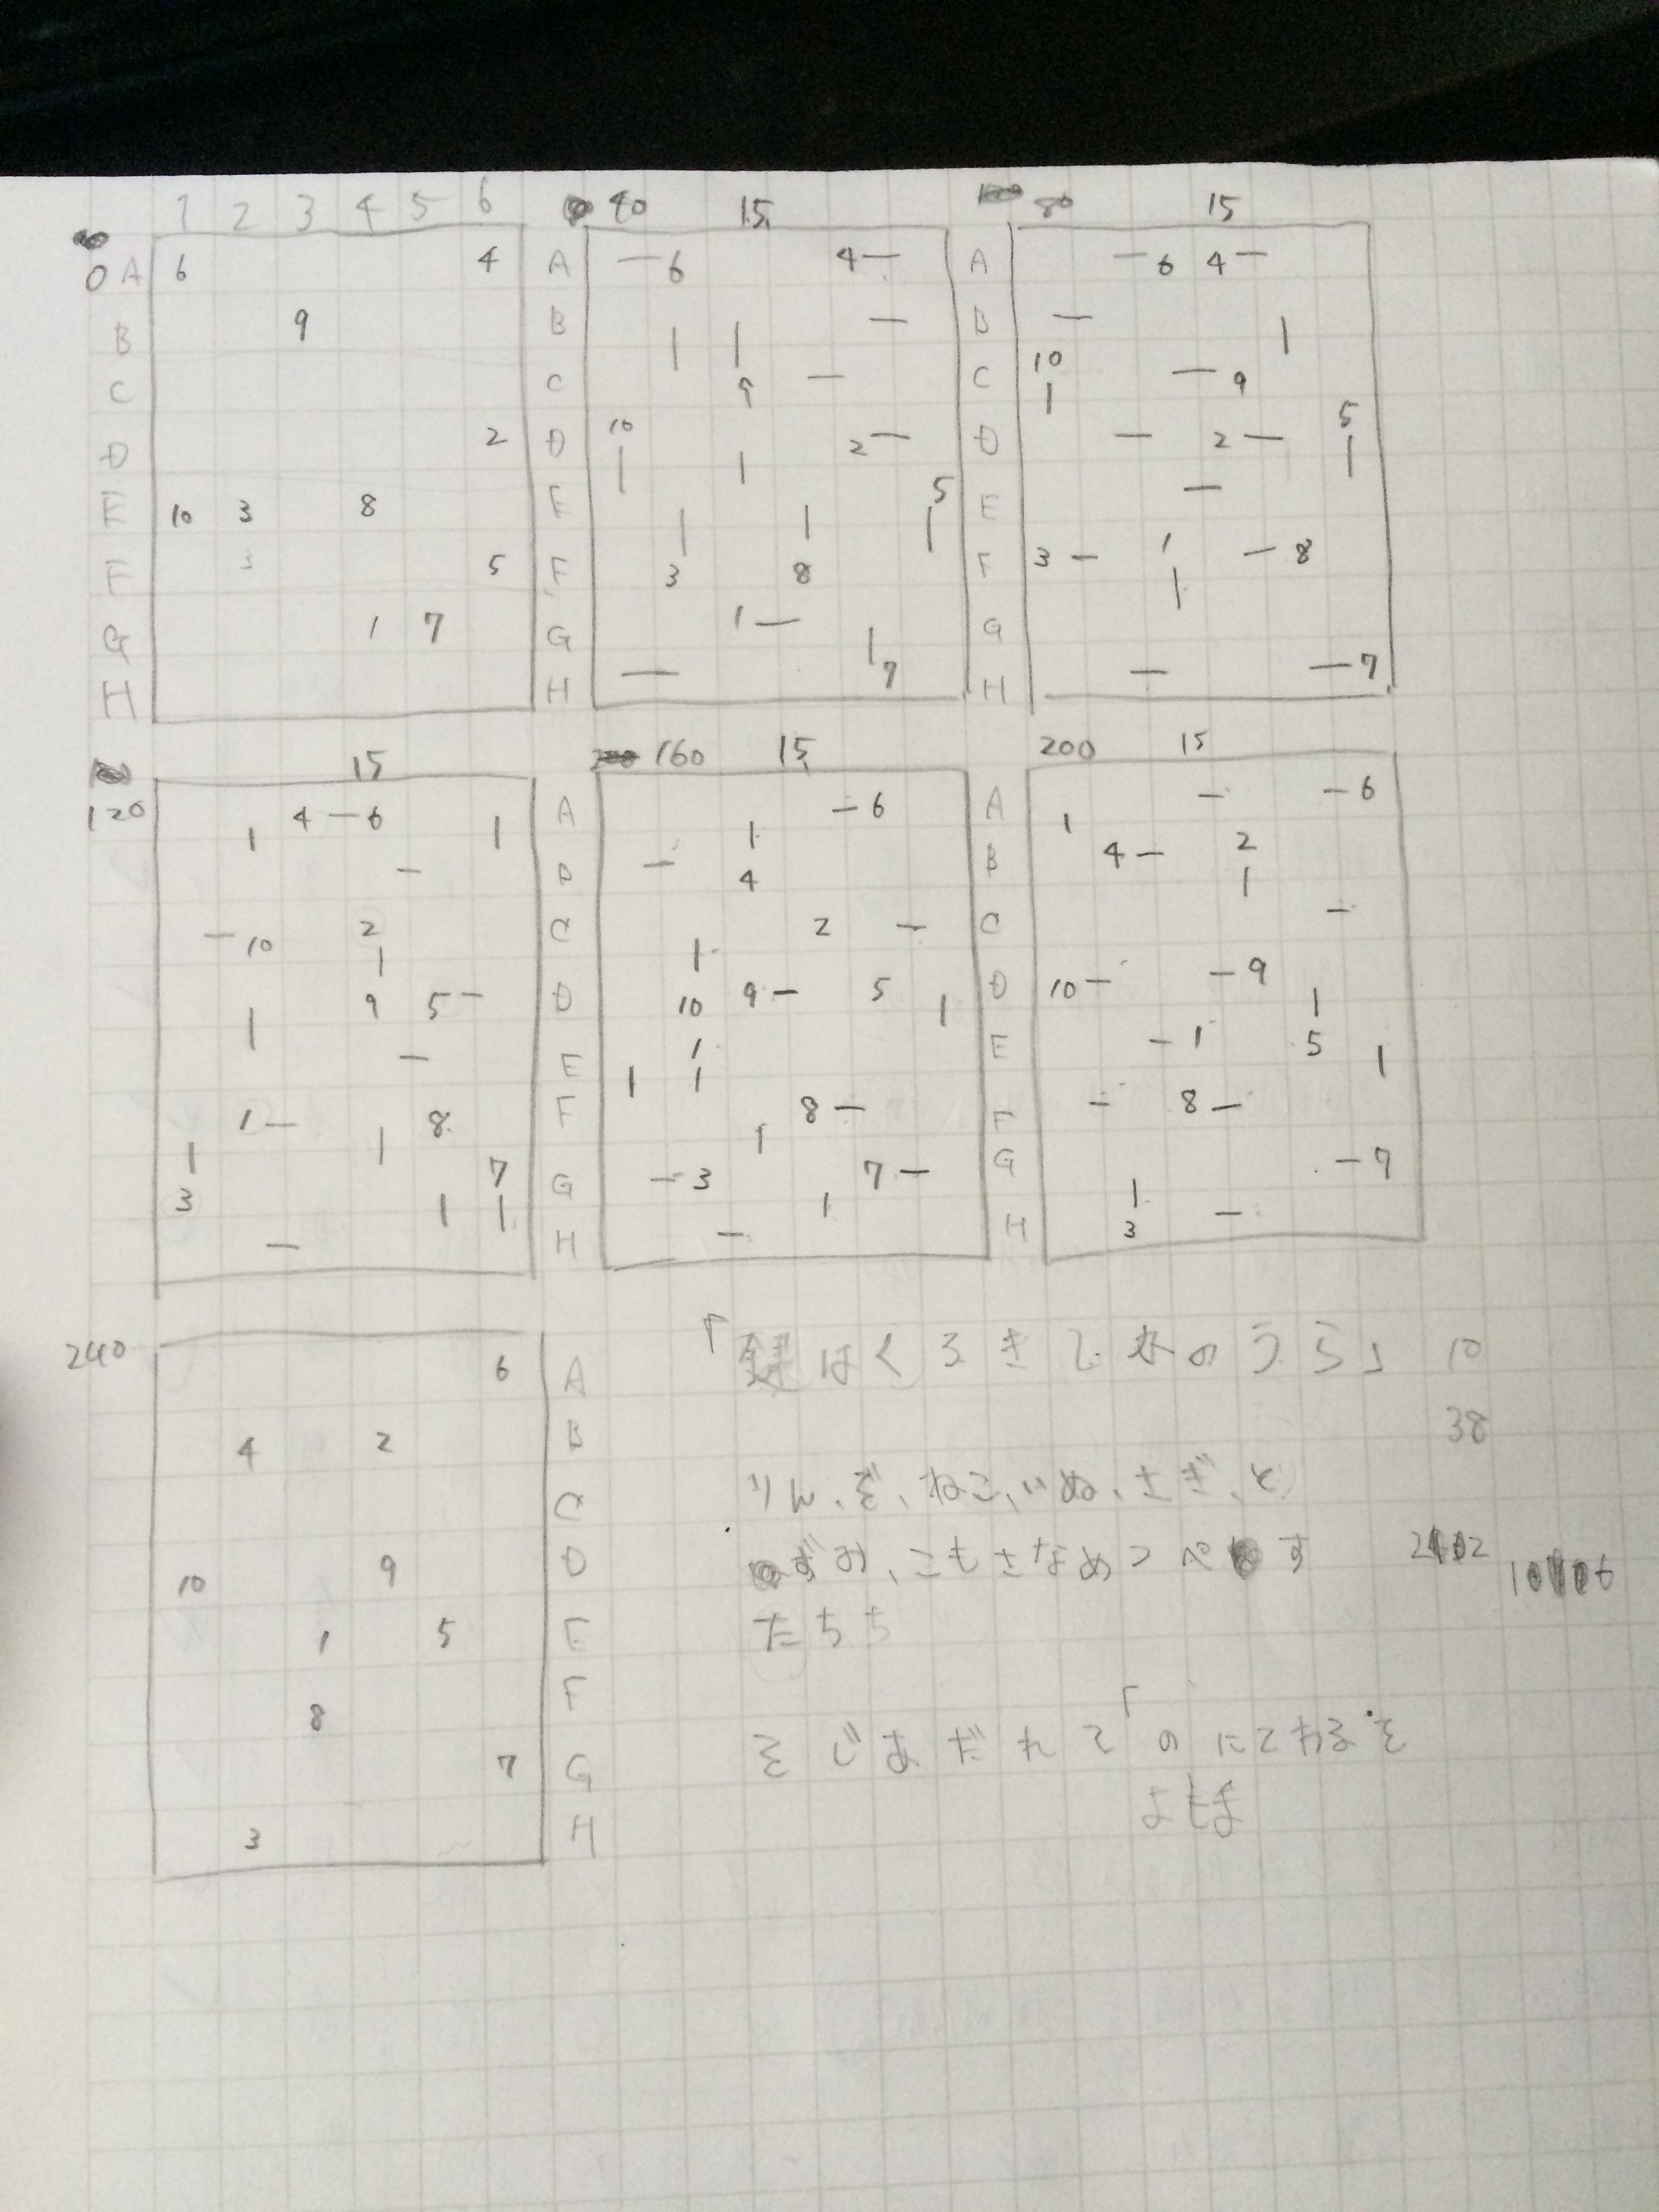 1 2 3 4 5 6
0 A 6 4
B 9
C
D 2
E 10 3 8
F 3 5
G 1 7
H
40 15
A 6 4
B
C 9
D 10 2
E 5
F 3 8
G 1
H 7
80 15
A 6 4
B
C 10 9
D 2 5
E
F 3 1 8
G
H 7
120 15
4 6
2
10
9 5
1 8
7
3
160 15
A 6
B 4
C 2
D 10 9 5
E 1
F 8
G 3 7
H
200 15
A 6
B 4 2
C
D 10 9
E 1 5
F 8
G 7
H 3
240
6 A
4 2 B
C
10 9 D
1 5 E
8 F
7 G
3 H
「鍵はくろきしかのうら」 10
38
りん、ぞ、ねこ、いぬ、さぎ、と
ずみ、こもさなめつべす
たちち